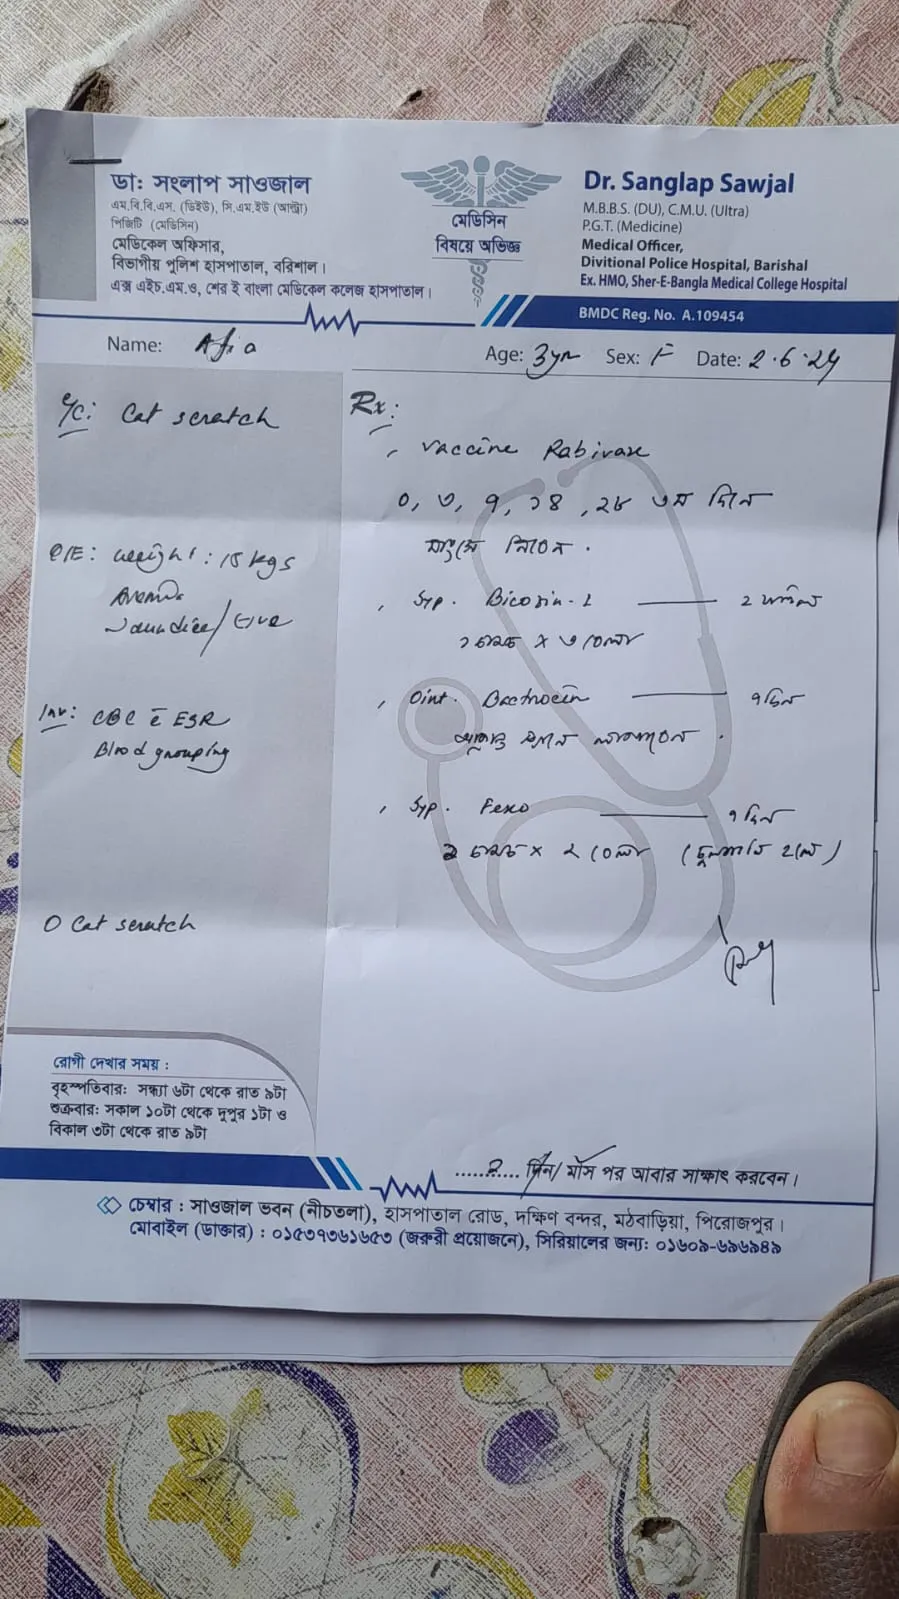 ডা: সংলাপ সাওজাল
এম.বি.বি.এস. (ডিইউ), সি.এম.ইউ (আল্ট্রা)
পিজিটি (মেডিসিন)
মেডিকেল অফিসার,
বিভাগীয় পুলিশ হাসপাতাল, বরিশাল।
এক্স এইচ.এম.ও, শের ই বাংলা মেডিকেল কলেজ হাসপাতাল।
মেডিসিন
বিষয়ে অভিজ্ঞ
Dr. Sanglap Sawjal
M.B.B.S. (DU), C.M.U. (Ultra)
P.G.T. (Medicine)
Medical Officer,
Divitional Police Hospital, Barishal
Ex. HMO, Sher-E-Bangla Medical College Hospital
BMDC Reg. No. A.109454
Name: Afia Age: 3yrs Sex: F Date: 2.6.24
C/C: Cat scratch
O/E: Weight: 15 kgs
Anemia
Jaundice/
Inv: CBC c̄ ESR
Blood grouping
Cat scratch
Rx:
Vaccine Rabivax
০, ৩, ৭, ১৪, ২৮ তম দিনে
মাংসে নিবেন.
Syp.
১ চামচ x ৩ বেলা
Oint. Bactrocin ৭ দিন
স্থানে লাগাবেন.
Syp. Fexo ৭ দিন
চামচ x ২ বেলা (চুলকানি হলে)
রোগী দেখার সময় :
বৃহস্পতিবার: সন্ধ্যা ৬টা থেকে রাত ৯টা
শুক্রবার: সকাল ১০টা থেকে দুপুর ১টা ও
বিকাল ৩টা থেকে রাত ৯টা
দিন/ মাস পর আবার সাক্ষাৎ করবেন।
চেম্বার : সাওজাল ভবন (নীচতলা), হাসপাতাল রোড, দক্ষিণ বন্দর, মঠবাড়িয়া, পিরোজপুর।
মোবাইল (ডাক্তার) : ০১৫৩৭৩৬১৬৫৩ (জরুরী প্রয়োজনে), সিরিয়ালের জন্য: ০১৬০৯-৬৯৬৯৪৯